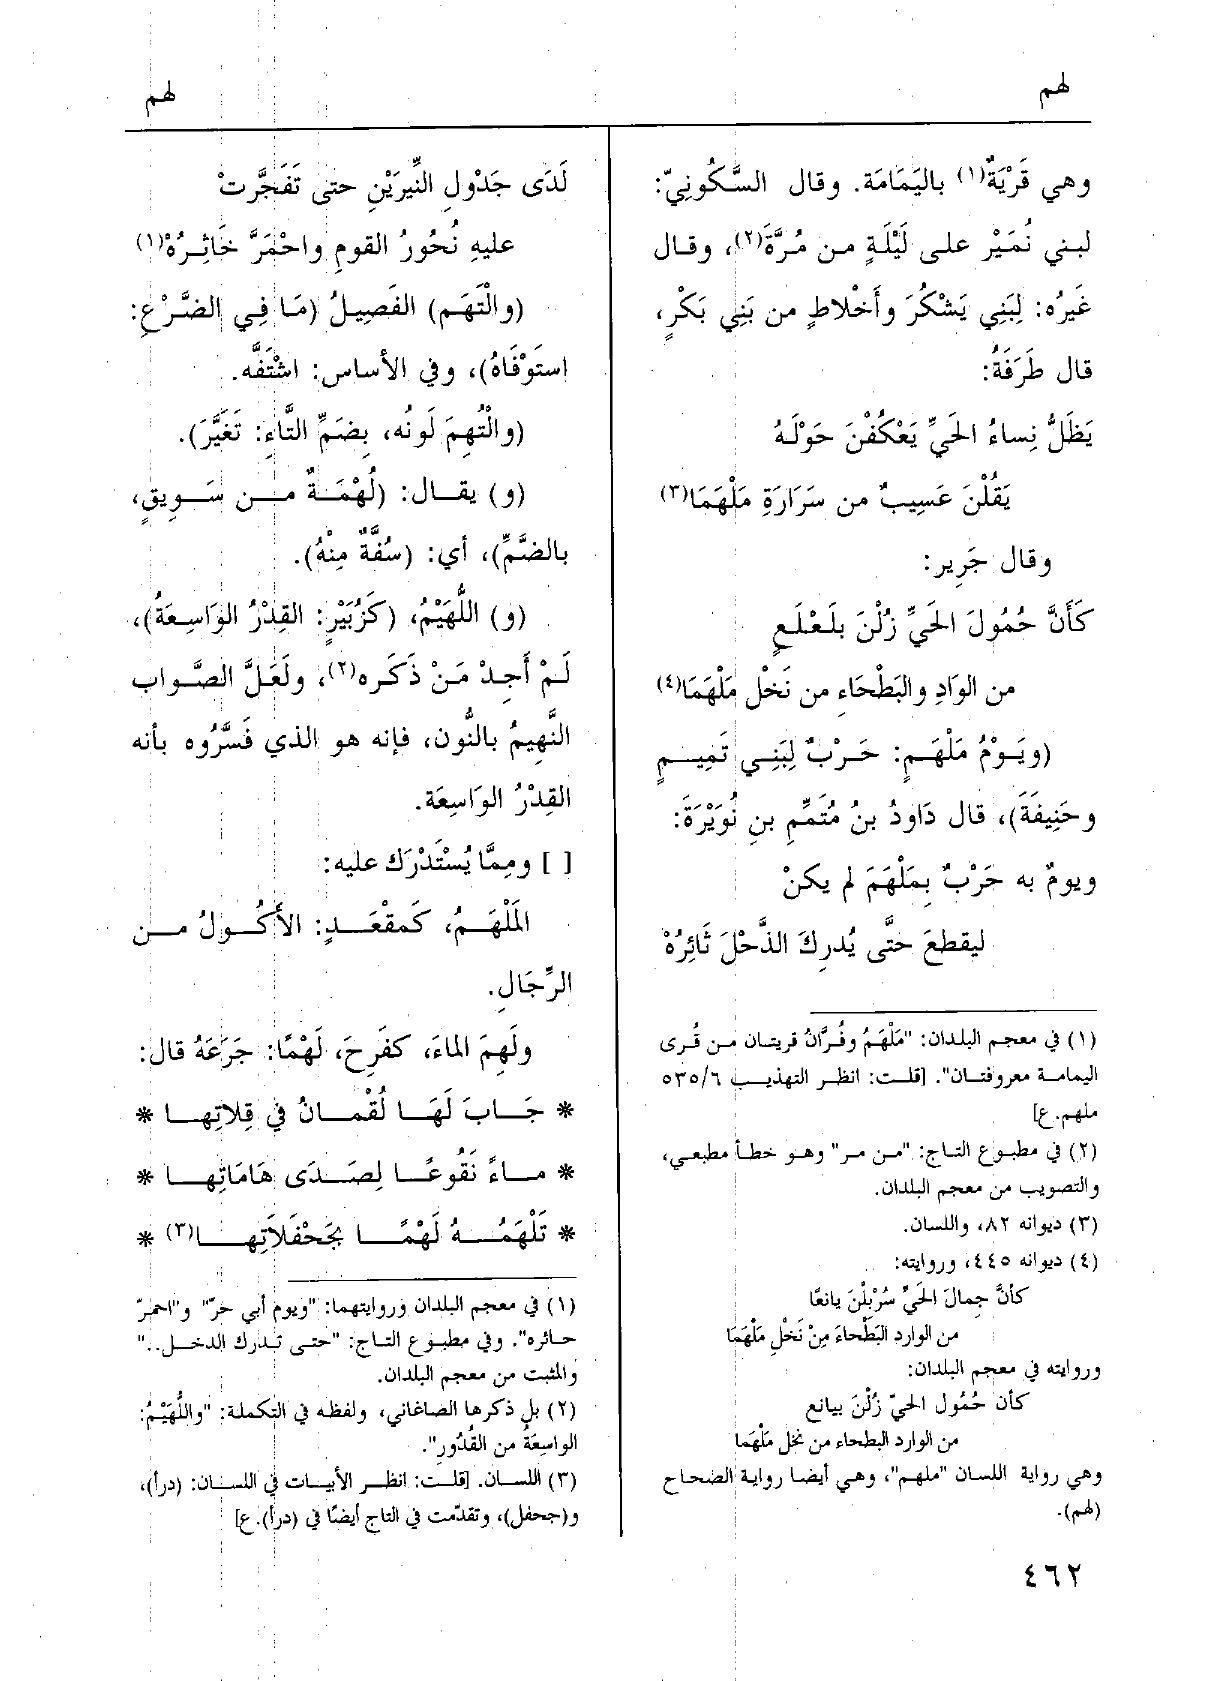 لهم
لهم
وهي قَرْيَةٌ(١) باليَمَامَة. وقال السَّكُونِيّ:
لبني نُمَيْر على لَيْلَةٍ من مُرَّةَ(٢)، وقال
غَيرُه: لِبَنِي يَشْكُرَ وأَخْلاطٍ من بَنِي بَكْرٍ،
قال طَرَفَةُ:
يَظَلُّ نِساءُ الحَيِّ يَعْكُفْنَ حَوْلَهُ
يَقُلْنَ عَسِيبٌ من سَرَارَةِ مَلْهَمَا(٣)
وقال جَرِير:
كَأَنَّ حُمُولَ الحَيِّ زُلْنَ بِلَعْلَعٍ
من الوَادِ والبَطْحَاءِ من نَخْلِ مَلْهَمَا(٤)
(ويَوْمُ مَلْهَمٍ: حَرْبٌ لِبَنِي تَمِيمٍ
وحَنِيفَةَ)، قال دَاودُ بنُ مُتَمِّمِ بنِ نُوَيْرَةَ:
ويومٌ به حَرْبٌ بِمَلْهَمَ لم يكنْ
ليقطعَ حتَّى يُدرِكَ الذَّحْلَ ثَائِرُهْ
(١) في معجم البلدان: "مَلْهَمُ وقُرَّانُ قريتان من قُرى
اليمامة معروفتان". [قلت: انظر التهذيب ٥٣٥/٦
ملهم. ع]
(٢) في مطبوع التاج: "من مر" وهو خطأ مطبعي،
والتصويب من معجم البلدان.
(٣) ديوانه ٨٢، واللسان.
(٤) ديوانه ٤٤٥، وروايته:
كأنَّ جِمالَ الحَيِّ سُرْبِلْنَ يانعًا
من الوارد البَطْحاءَ مِنْ نَخْلِ مَلْهَمَا
وروايته في معجم البلدان:
كأن حُمُول الحيّ زُلْنَ بيانع
من الوارد البطحاء من نخل مَلْهَما
وهي رواية اللسان "ملهم"، وهي أيضا رواية الصحاح
(لهم).
لَدَى جَدْولِ النِّيرَيْنِ حتى تَفَجَّرتْ
عليهِ نُحُورُ القومِ واحْمَرَّ حَائِرُهْ(١)
(والْتَهَم) الفَصِيلُ (مَا فِي الضَّرْعِ:
استَوْفَاهُ)، وفي الأساس: اشْتَفَّه.
(والْتُهِمَ لَونُه، بِضَمِّ التَّاءِ: تَغَيَّرَ).
(و) يقال: (لُهْمَةٌ من سَوِيقٍ،
بالضمِّ)، أي: (سُفَّةٌ مِنْهُ).
(و) اللُّهَيْمُ، (كَزُبَيْرٍ: القِدْرُ الوَاسِعَةُ)،
لَمْ أَجِدْ مَنْ ذَكَره(٢)، ولَعَلَّ الصَّواب
النُّهِيمُ بالنُّون، فإنه هو الذي فَسَّرُوه بأنه
القِدْرُ الوَاسِعَة.
[ ] ومِمَّا يُسْتَدْرَك عليه:
المَلْهَمُ، كَمَقْعَدٍ: الأَكُولُ من
الرِّجَالِ.
ولَهِمَ الماءَ، كفَرِحَ، لَهْمًا: جَرَعَهُ قال:
* جَابَ لَهَا لُقْمانُ في قِلاتِها *
* ماءً نَقُوعًا لِصَدَى هَامَاتِها *
* تَلْهَمُهُ لَهْمًا بجَحْفَلاَتِها(٣) *
(١) في معجم البلدان وروايتهما: "ويوم أبي حرّ" و"احمرّ
حائره". وفي مطبوع التاج: "حتى تدرك الدخل.."
والمثبت من معجم البلدان.
(٢) بل ذكرها الصاغاني، ولفظه في التكملة: "واللُّهَيْمُ:
الواسِعَةُ من القُدُورِ".
(٣) اللسان. [قلت: انظر الأبيات في اللسان: (درأ)،
و(جحفل)، وتقدّمت في التاج أيضًا في (درأ). ع]
٤٦٢